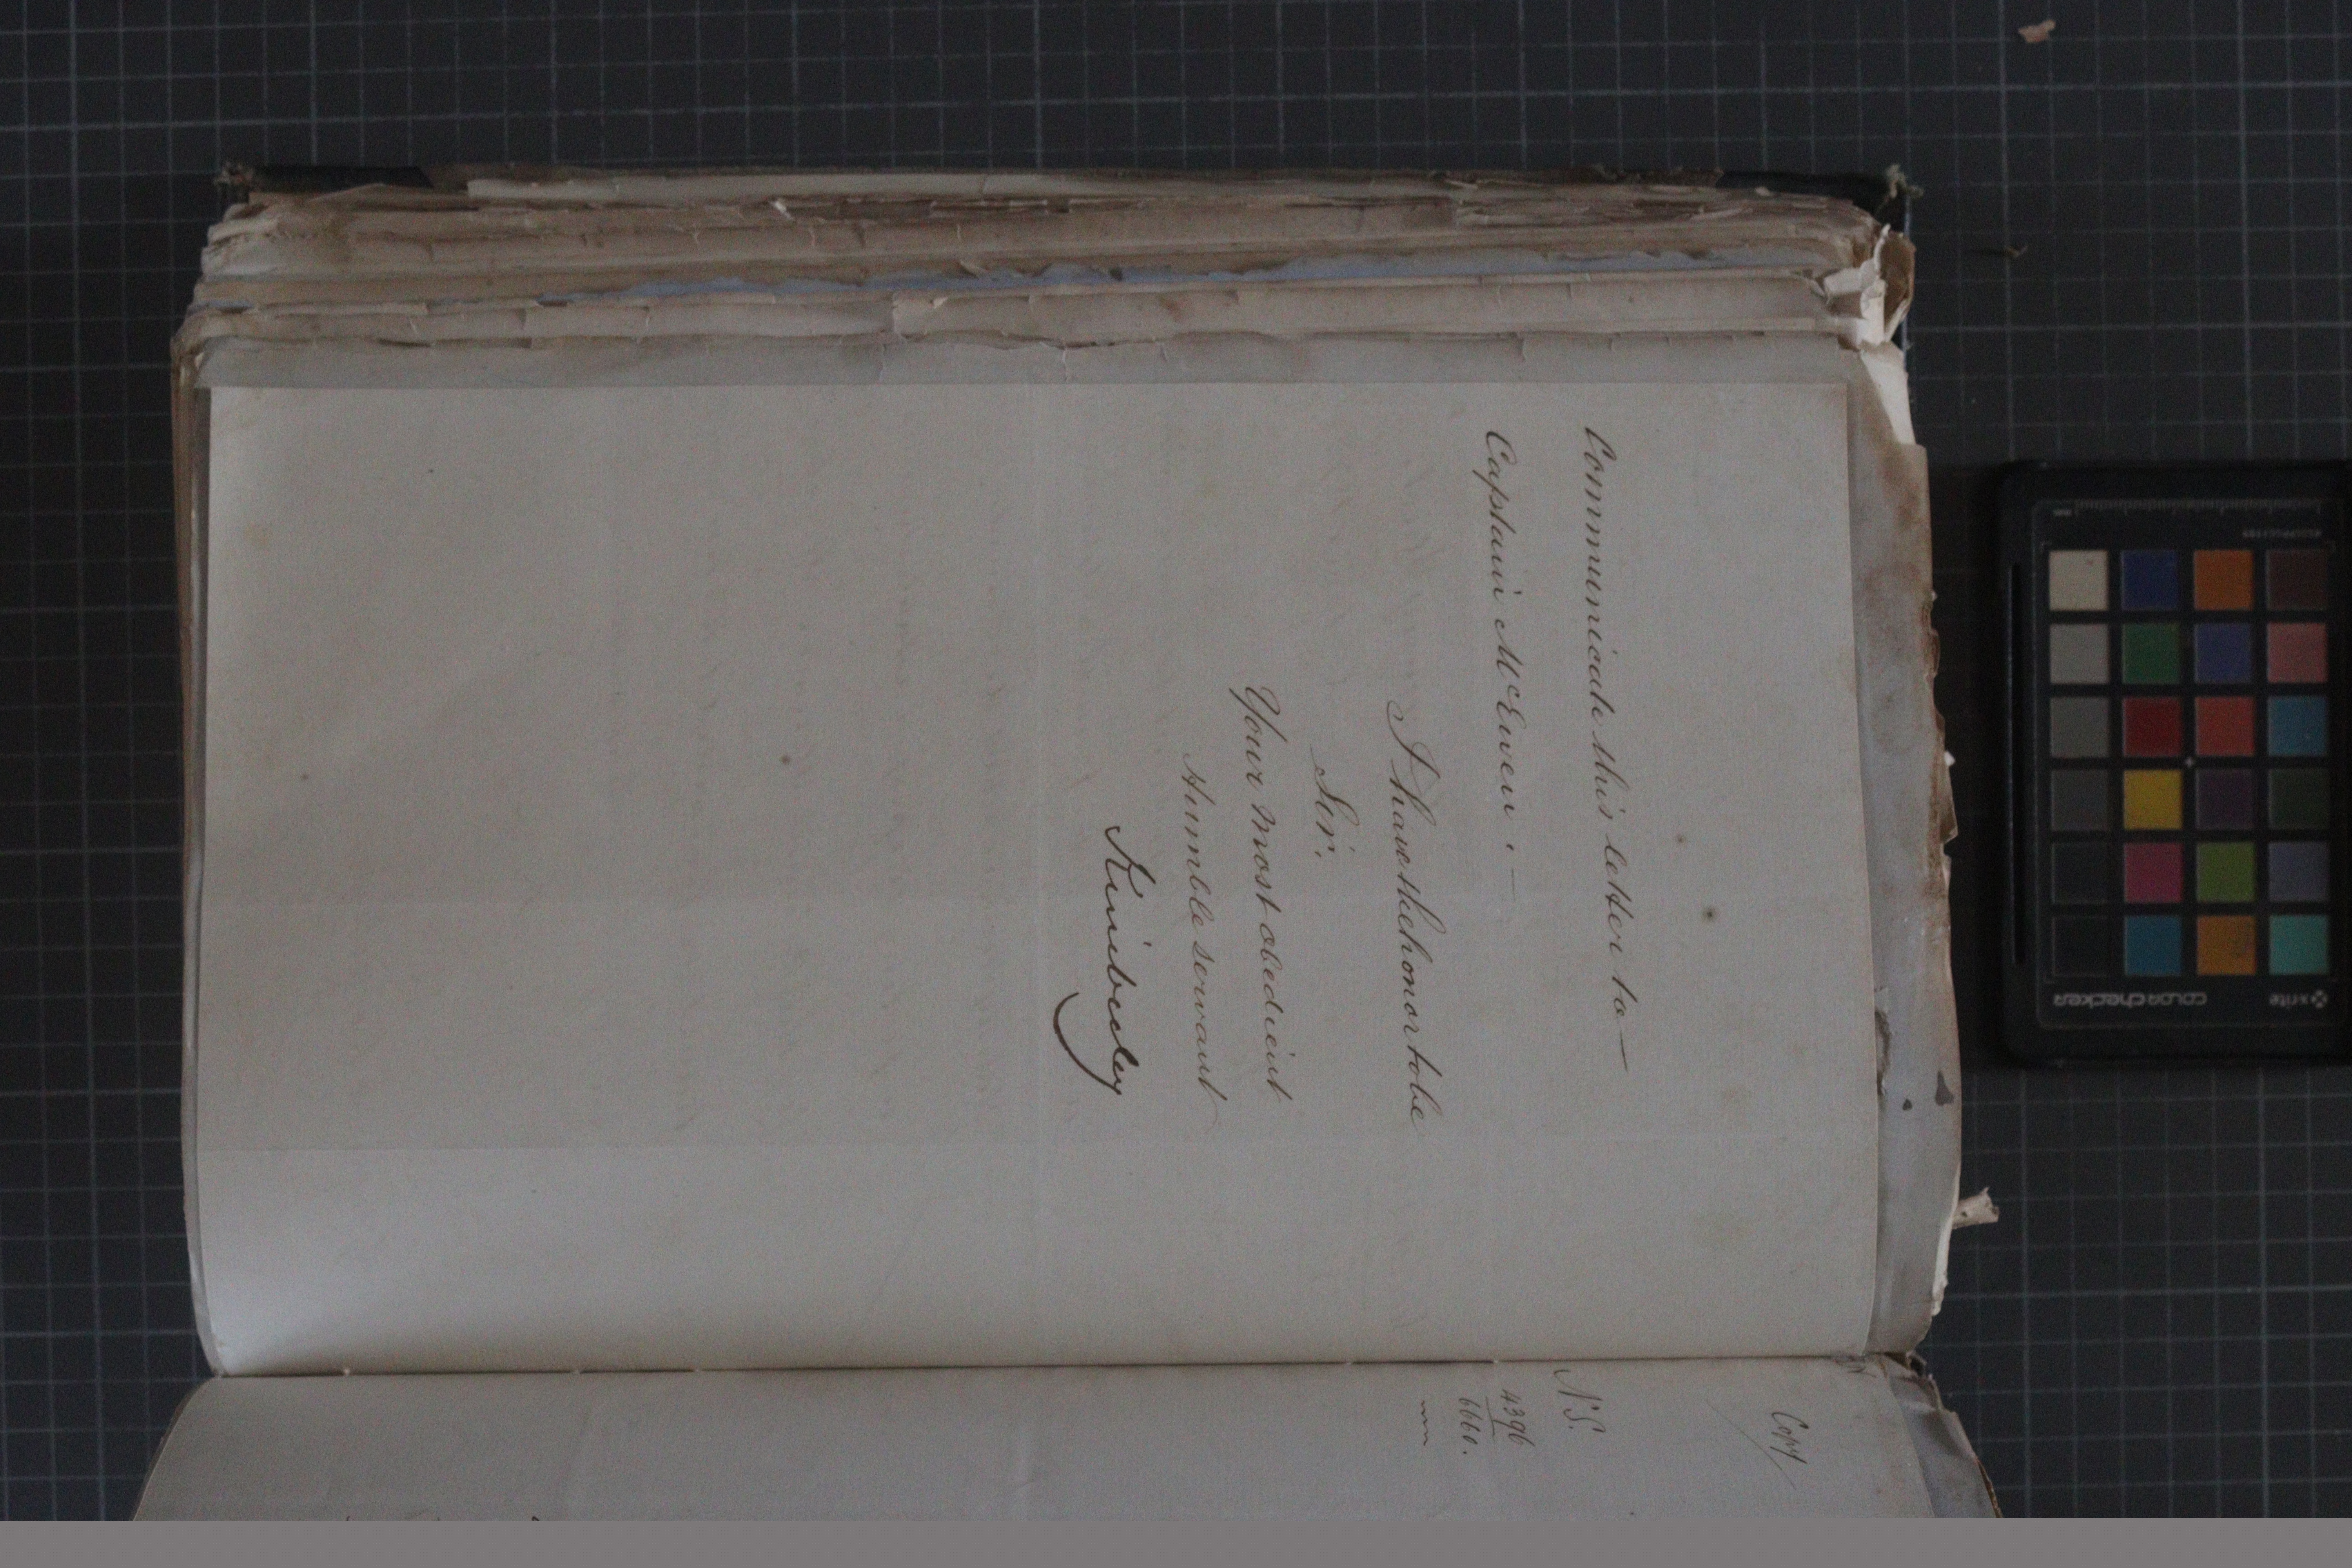 Communicate this letter to—
Captain McEwen.—
I have the honor to be
Sir,
Your most obedient
Humble servant
Kimberley
Copy
N.S.
4396
6660.
colorchecker
x-rite